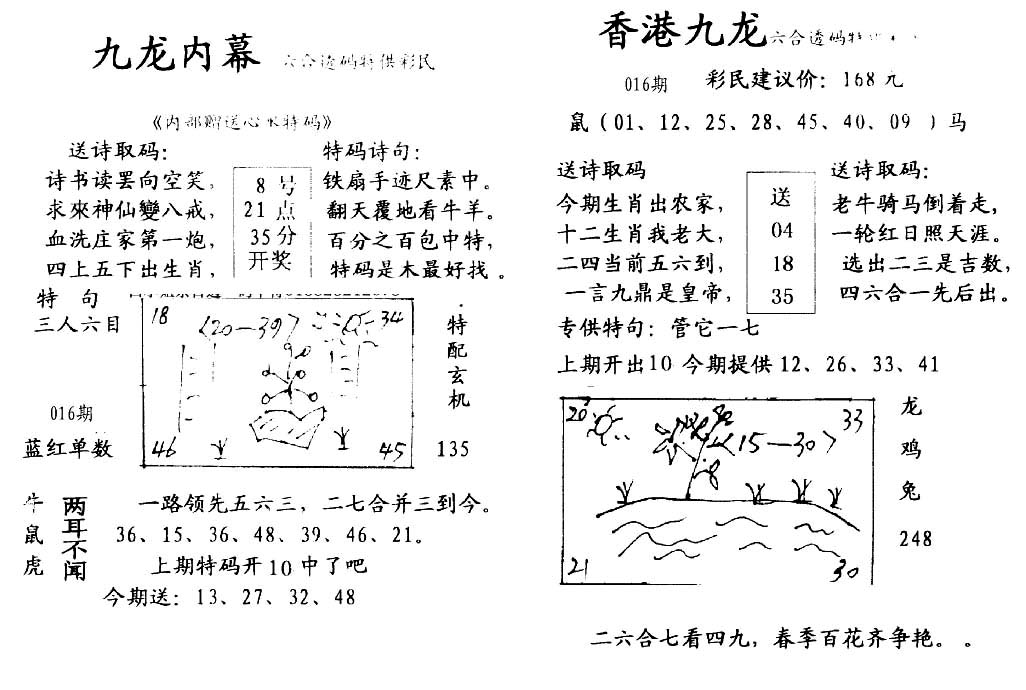 九龙内幕
六合透码特供彩民
《内部赠送心水特码》
送诗取码：
诗书读罢向空笑，
求來神仙變八戒，
血洗庄家第一炮，
四上五下出生肖，
8号
21点
35分
开奖
特码诗句：
铁扇手迹尺素中。
翻天覆地看牛羊。
百分之百包中特，
特码是木最好找。
特 句
三人六目
016期
蓝红单数
18
〈20-39〉
34
46
45
特配玄机
135
牛
鼠
虎
两耳不闻
一路领先五六三，二七合并三到今。
36、15、36、48、39、46、21。
上期特码开10中了吧
今期送：13、27、32、48
香港九龙
六合透码特
016期 彩民建议价：168元
鼠（01、12、25、28、45、40、09 ）马
送诗取码
今期生肖出农家，
十二生肖我老大，
二四当前五六到，
一言九鼎是皇帝，
送
04
18
35
送诗取码：
老牛骑马倒着走，
一轮红日照天涯。
选出二三是吉数，
四六合一先后出。
专供特句：管它一七
上期开出10 今期提供12、26、33、41
20
33
〈15-30〉
21
30
龙
鸡
兔
248
二六合七看四九，春季百花齐争艳。。